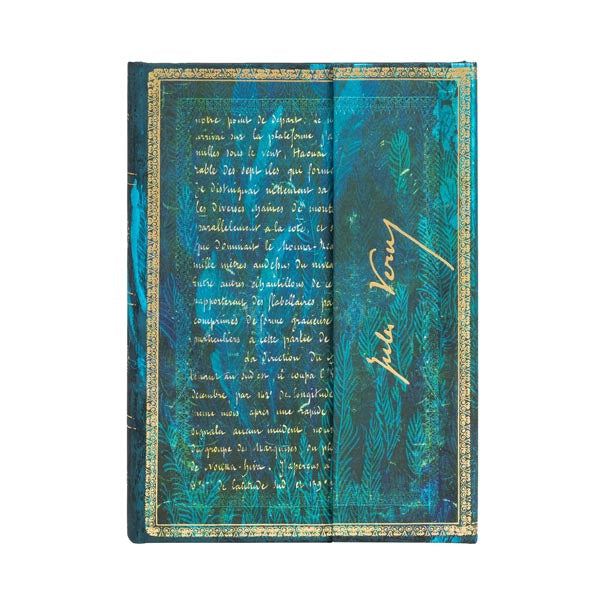 notre point de départ. Le m
arrivai sur la plateforme j'a
milles sous le vent, Haoua
rable des sept iles que forme
Je distinguai nettement sa
les diverses chaînes de mont
parallèlement à la côte, et s
que dominait le Mouna-Rea
mille mètres audessus du nivea
Entre autres échantillons de ce
rapportèrent des flabellaires pa
comprimés de forme gracieuse
particuliers à cette partie de
La direction du
sud est, il coupa l'
décembre, par 142° de longitude
même mois, après une rapide
signala aucun incident, nous
du groupe de Marquises
de Nouka-hiva. J'aperçus à
de latitude sud et 139°
Jules Verne